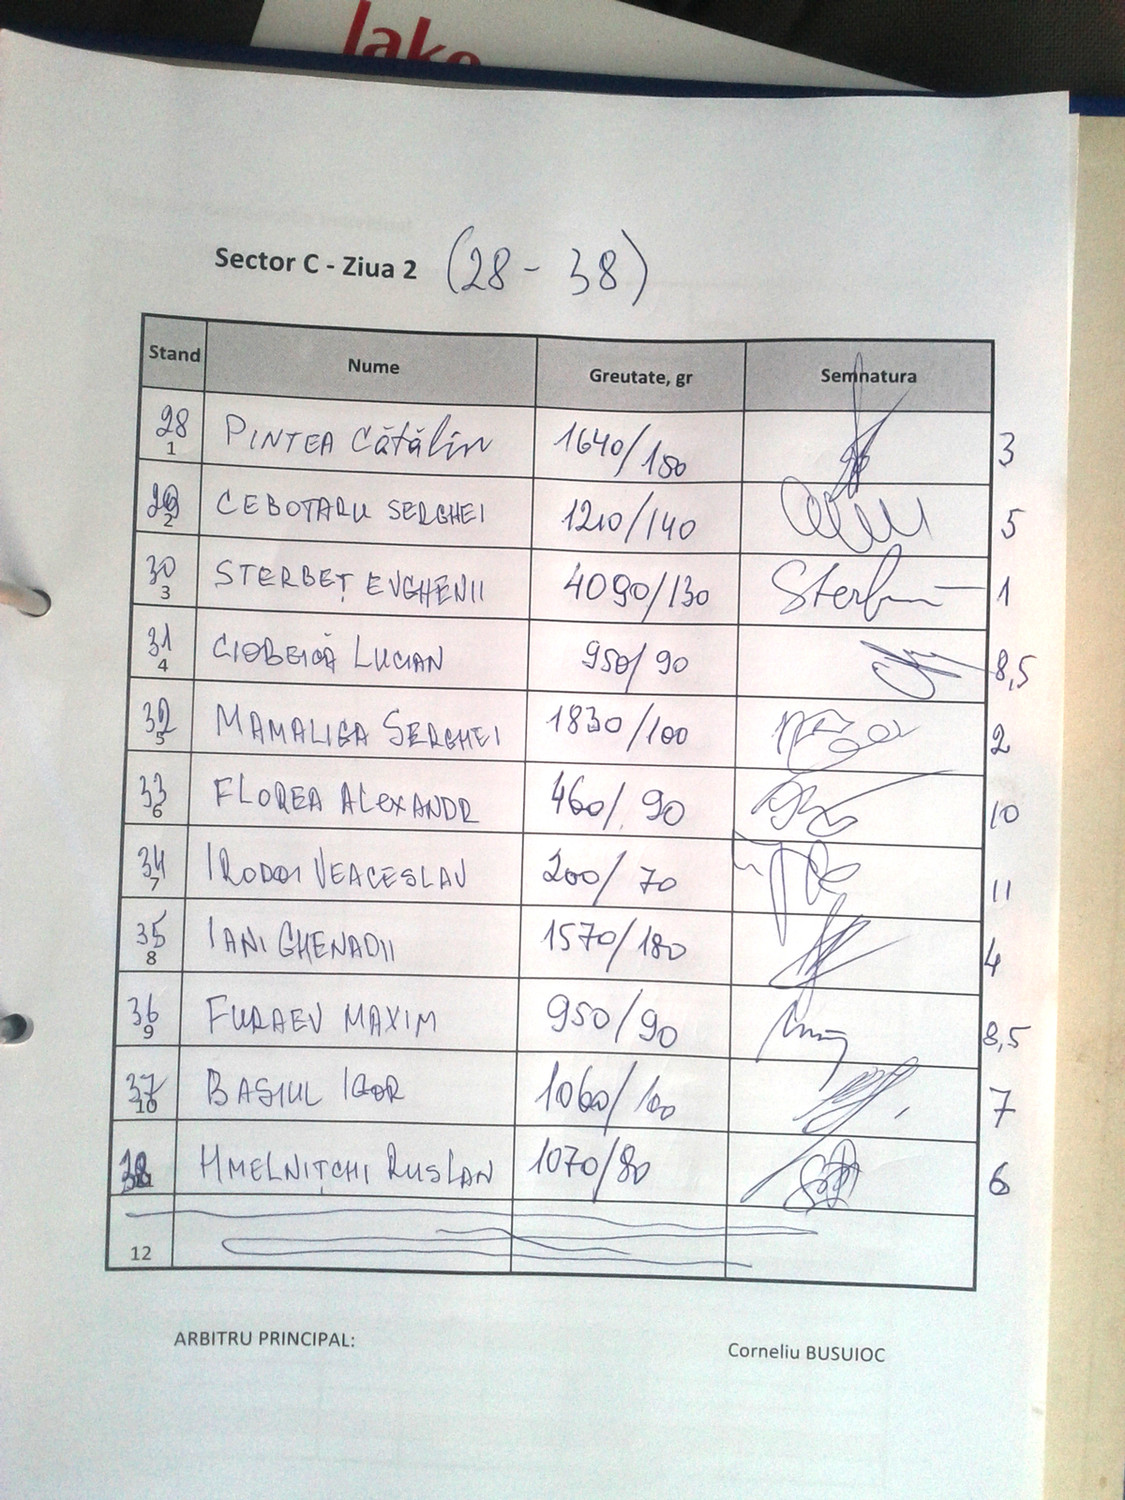 lake
Sector C - Ziua 2 (28 - 38)
Stand Nume Greutate, gr Semnatura
28 1 PINTEA Cătălin 1640/180 3
29 2 CEBOTARU SERGHEI 1210/140 5
30 3 STERBEȚ EVGHENII 4090/130 1
31 4 CIOBEICĂ LUCIAN 950/90 8,5
32 5 MAMALIGA SERGHEI 1830/100 2
33 6 FLOREA ALEXANDR 460/90 10
34 7 IRODOI VEACESLAV 200/70 11
35 8 IANI GHENADII 1570/180 4
36 9 FURAEV MAXIM 950/90 8,5
37 10 BASIUL IGOR 1060/100 7
38 HMELNIȚCHI RUSLAN 1070/80 6
12
ARBITRU PRINCIPAL: Corneliu BUSUIOC